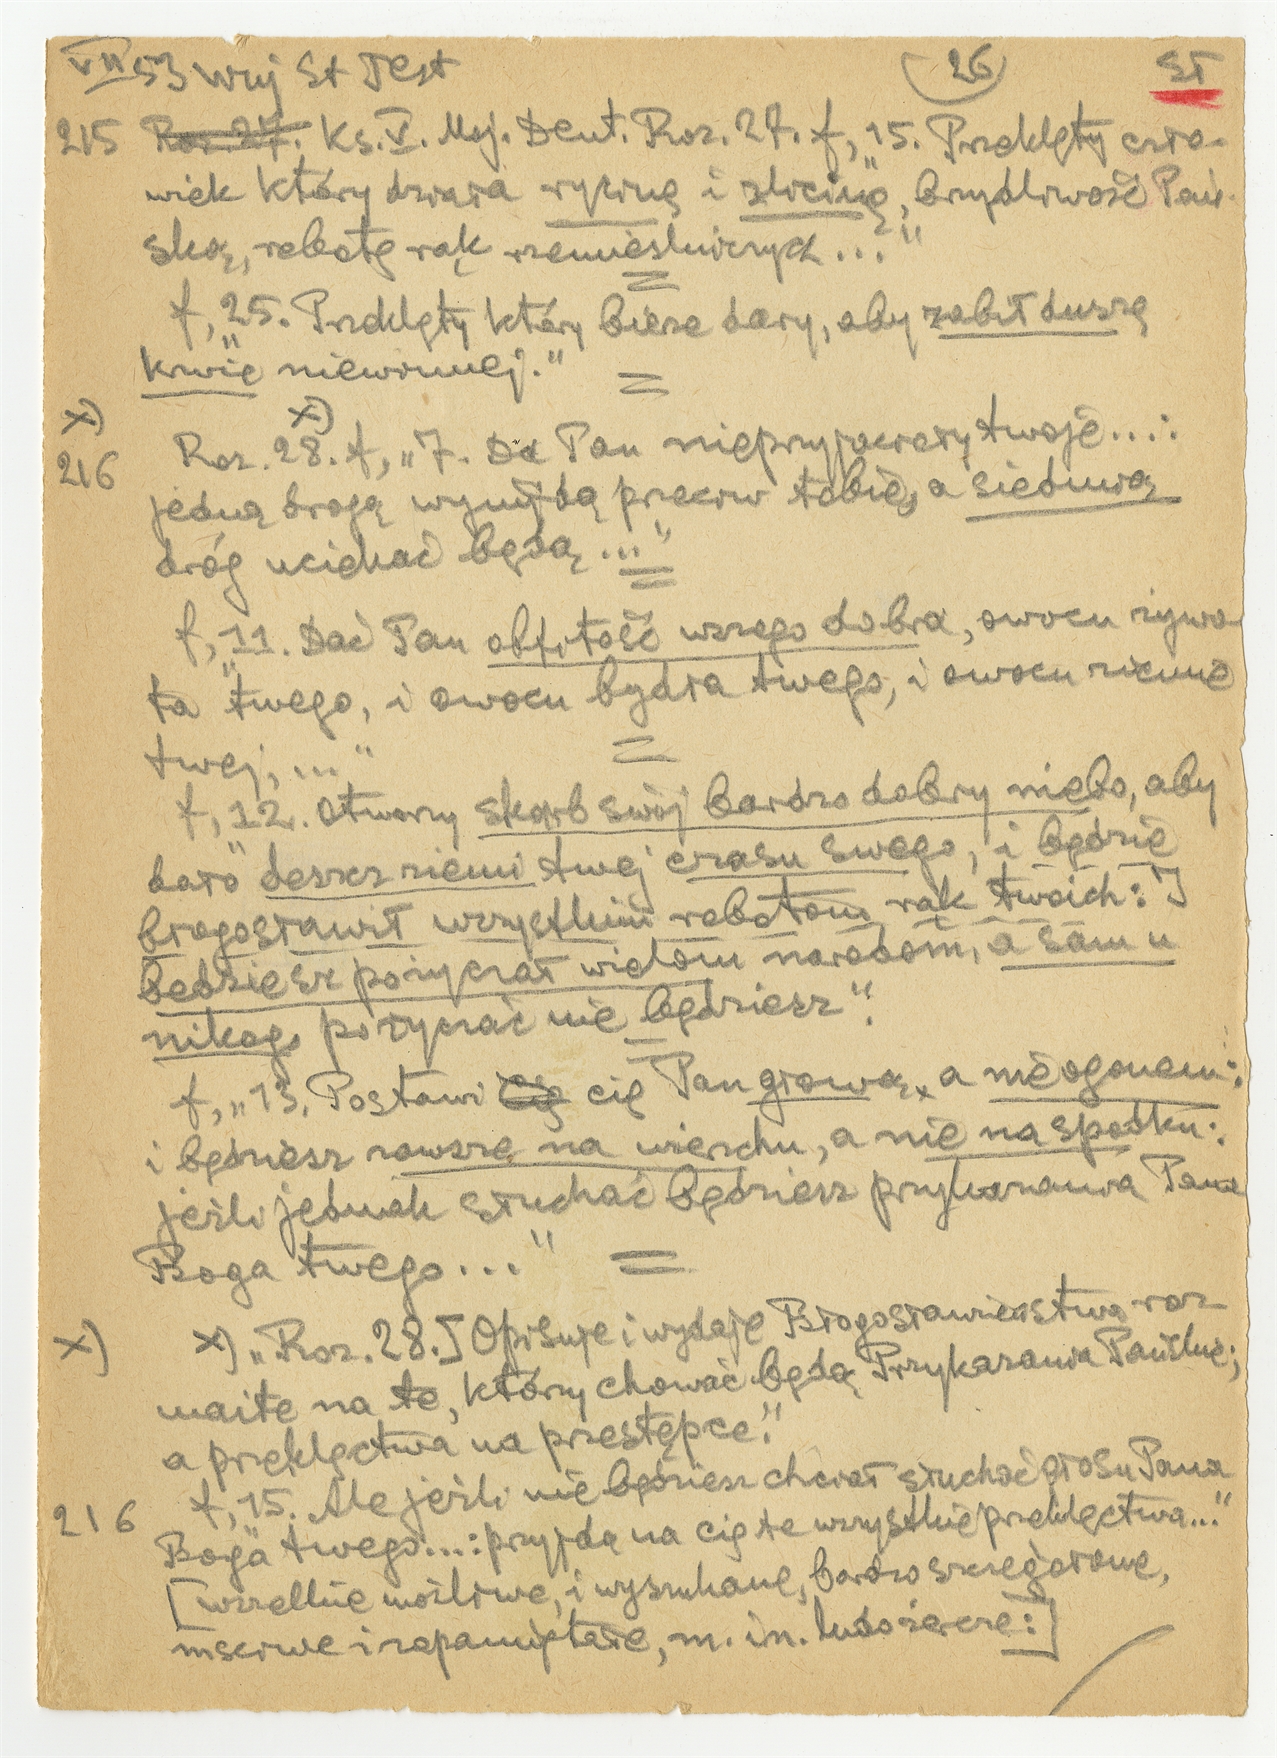 VII 53 Wuj St Test (26) ST
215 Roz. 27. Ks. V. Moj. Deut. Roz. 27. f, „15. Przeklęty czło-
wiek który działa rycinę i zlicinę, brzydliwość Pań-
ską, robotę rąk rzemieślniczych..."
f, „25. Przeklęty który bierze dary, aby zabił duszę
krwie niewinnej."
x) x)
216 Roz. 28. f, „7. Da Pan nieprzyjacioły twoje...:
jedną drogą wynijdą przeciw tobie, a siedmią
dróg uciekać będą..."
f, „11. Dać Pan obfitość wszego dobra, owocu żywo-
ta twego, i owocu bydła twego, i owocu ziemie
twej,..."
f, „12. Otworzy skarb swój bardzo dobry niebo, aby
dało deszcz ziemi twej czasu swego, i będzie
błogosławił wszystkim robotom rąk twoich: I
będziesz pożyczał wielom narodom, a sam u
nikogo pożyczać nie będziesz".
f, „13. Postawi cię Pan głową, a nie ogonem:
i będziesz zawsze na wierzchu, a nie na spodku:
jeśli jednak słuchać będziesz przykazania Pana
Boga twego..."
x) x) „Roz. 28.] Opisuje i wydaje Błogosławieństwa roz
maite na te, którzy chować będą Przykazania Pańskie;
a przeklęctwa na przestępce."
216 f, „15. Ale jeśli nie będziesz chciał słuchać głosu Pana
Boga twego...: przyjdą na cię te wszystkie przeklęctwa..."
[wszelkie możliwe, i wyszukane, bardzo szczegółowe,
mściwe i zapamiętałe, m. in. ludożercze:]